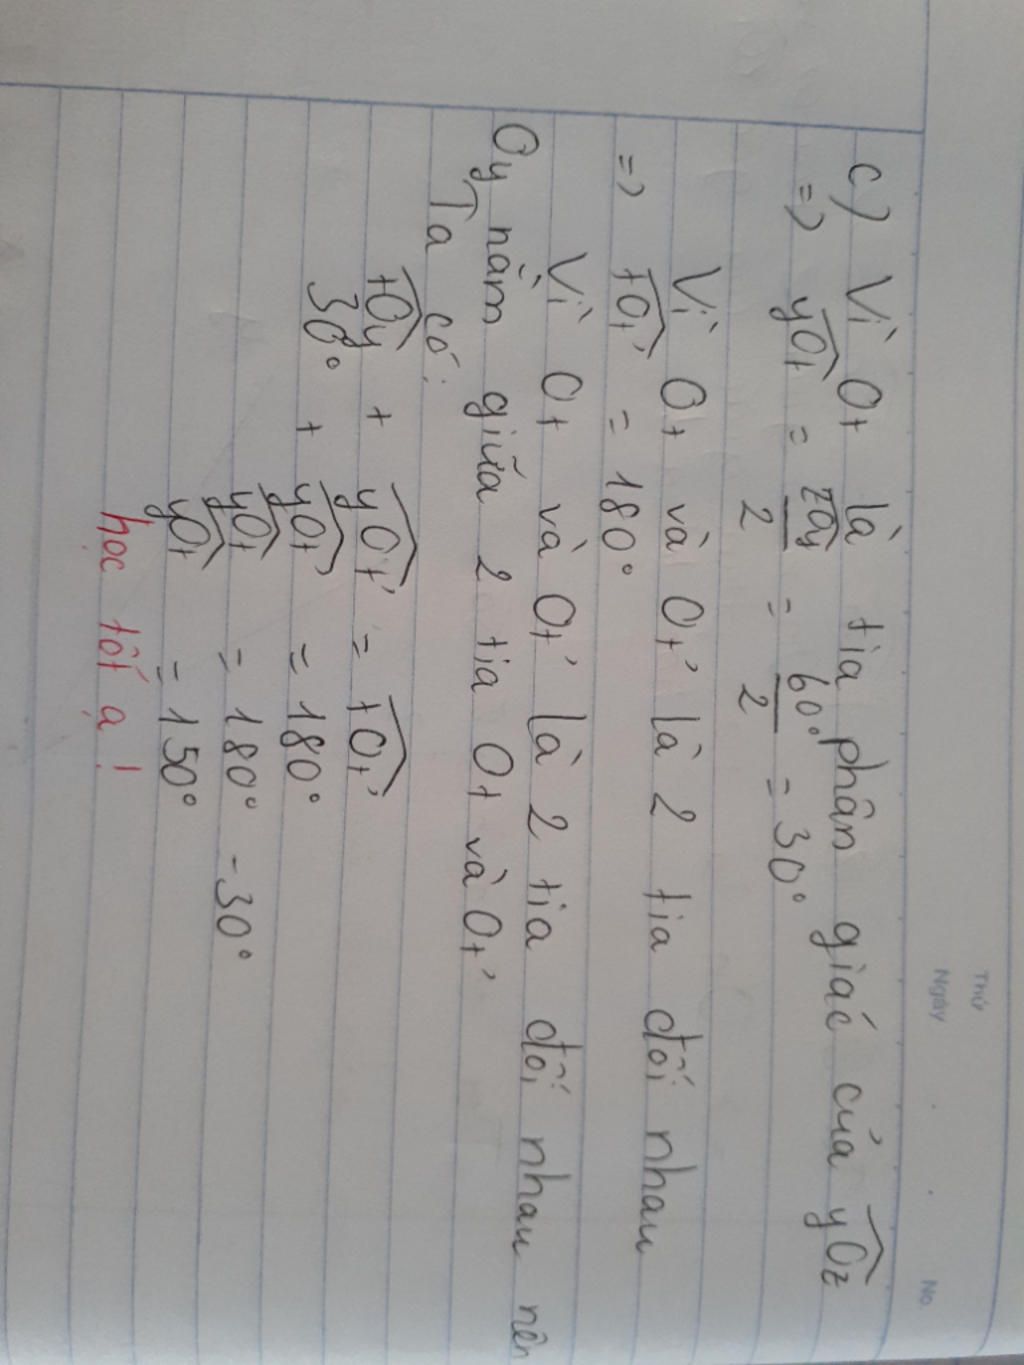 Thứ
Ngày . . No
c) Vì Ot là tia phân giác của yOz
=> yOt = zOy/2 = 60°/2 = 30°
Vì Ot và Ot' là 2 tia đối nhau
=> tOt' = 180°
Vì Ot và Ot' là 2 tia đối nhau nên
Oy nằm giữa 2 tia Ot và Ot'
Ta có:
tOy + yOt' = tOt'
30° + yOt' = 180°
yOt = 180° - 30°
yOt = 150°
học tốt ạ !